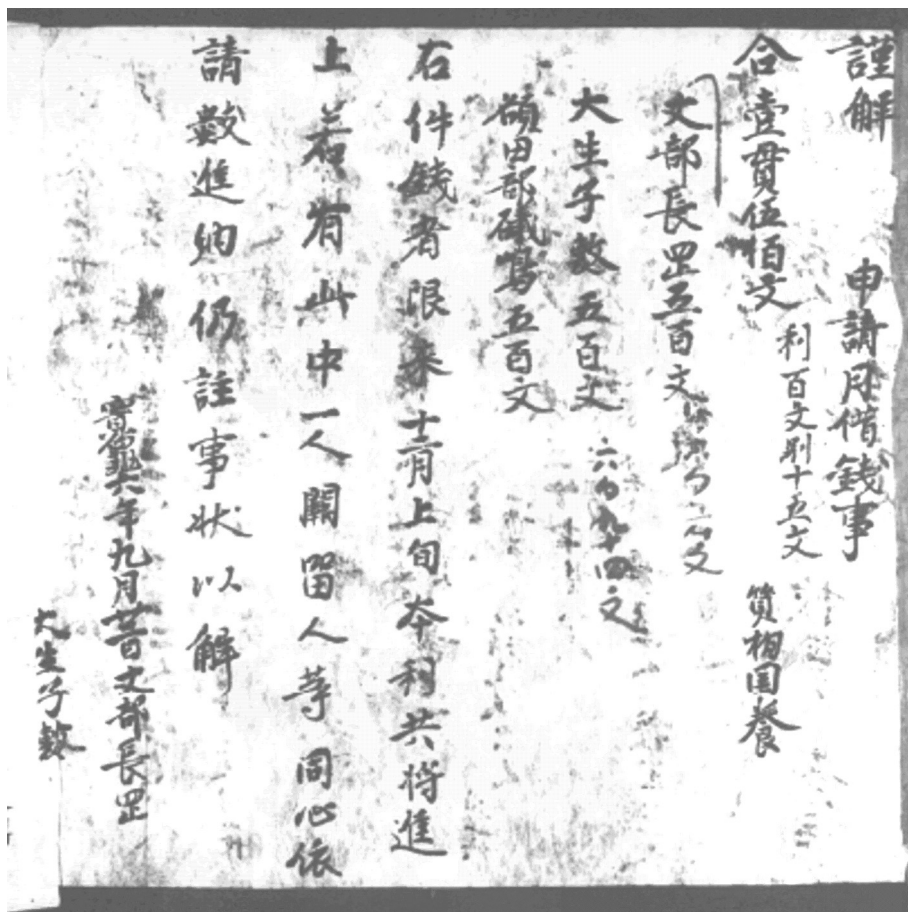 謹解　申請月借錢事
合壹貫伍佰文　利百文別十五文　質物国養
丈部長㓛五百文
大生子敷五百文　六百九十四文
額田部礒嶋五百文
右件錢者限来十一月上旬本利共將進
上若有此中一人闕留人等同心依
請數進納仍注事状以解
寳龜六年九月廿七日丈部長
大生子敷